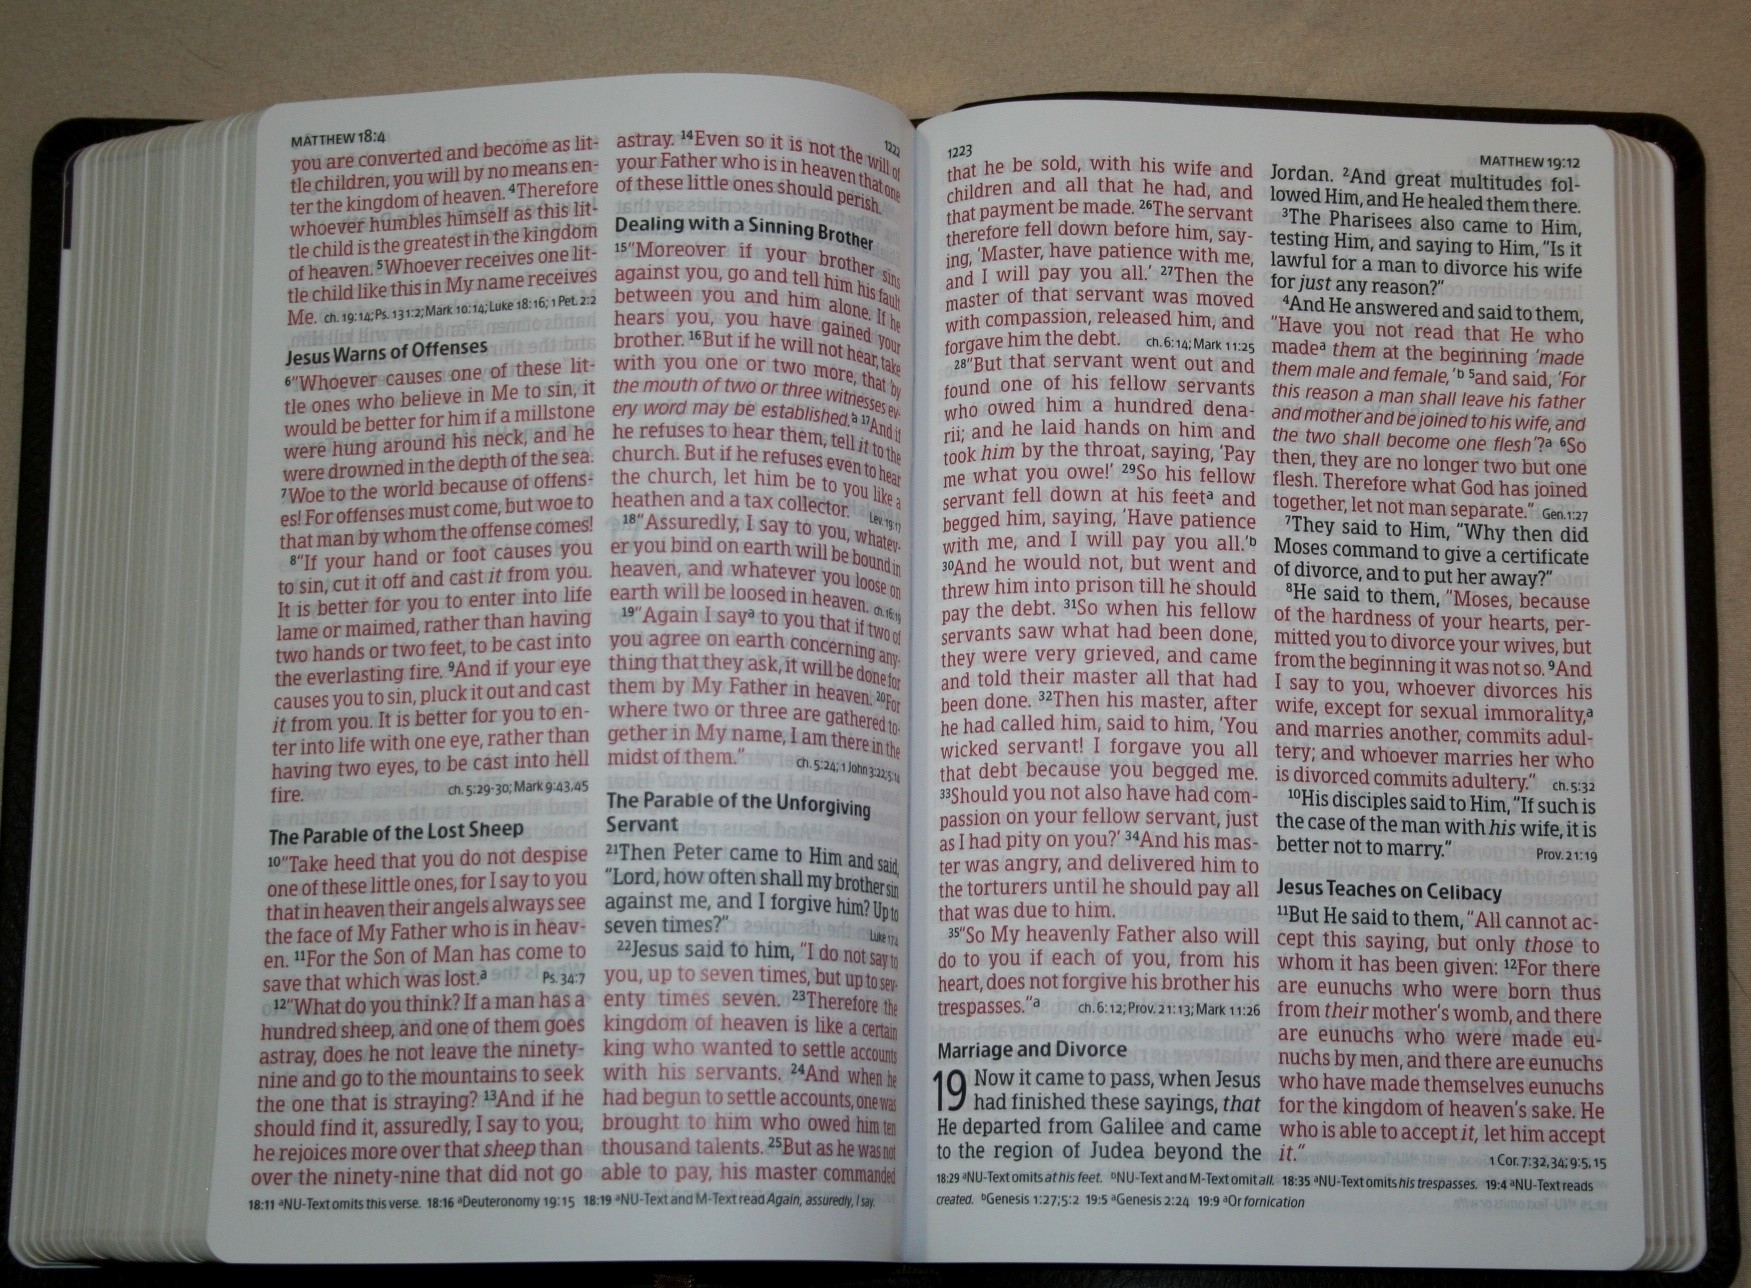 MATTHEW 18:4
you are converted and become as lit-
tle children, you will by no means en-
ter the kingdom of heaven. ⁴Therefore
whoever humbles himself as this lit-
tle child is the greatest in the kingdom
of heaven. ⁵Whoever receives one lit-
tle child like this in My name receives
Me. ch. 19:14; Ps. 131:2; Mark 10:14; Luke 18:16; 1 Pet. 2:2
Jesus Warns of Offenses
⁶“Whoever causes one of these lit-
tle ones who believe in Me to sin, it
would be better for him if a millstone
were hung around his neck, and he
were drowned in the depth of the sea.
⁷Woe to the world because of offens-
es! For offenses must come, but woe to
that man by whom the offense comes!
⁸“If your hand or foot causes you
to sin, cut it off and cast it from you.
It is better for you to enter into life
lame or maimed, rather than having
two hands or two feet, to be cast into
the everlasting fire. ⁹And if your eye
causes you to sin, pluck it out and cast
it from you. It is better for you to en-
ter into life with one eye, rather than
having two eyes, to be cast into hell
fire. ch. 5:29-30; Mark 9:43,45
The Parable of the Lost Sheep
¹⁰“Take heed that you do not despise
one of these little ones, for I say to you
that in heaven their angels always see
the face of My Father who is in heav-
en. ¹¹For the Son of Man has come to
save that which was lost.ᵃ Ps. 34:7
¹²“What do you think? If a man has a
hundred sheep, and one of them goes
astray, does he not leave the ninety-
nine and go to the mountains to seek
the one that is straying? ¹³And if he
should find it, assuredly, I say to you,
he rejoices more over that sheep than
over the ninety-nine that did not go
1222
astray. ¹⁴Even so it is not the will of
your Father who is in heaven that one
of these little ones should perish.
Dealing with a Sinning Brother
¹⁵“Moreover if your brother sins
against you, go and tell him his fault
between you and him alone. If he
hears you, you have gained your
brother. ¹⁶But if he will not hear, take
with you one or two more, that ‘by
the mouth of two or three witnesses ev-
ery word may be established.’ᵃ ¹⁷And if
he refuses to hear them, tell it to the
church. But if he refuses even to hear
the church, let him be to you like a
heathen and a tax collector. Lev. 19:17
¹⁸“Assuredly, I say to you, whatev-
er you bind on earth will be bound in
heaven, and whatever you loose on
earth will be loosed in heaven. ch. 16:19
¹⁹“Again I sayᵃ to you that if two of
you agree on earth concerning any-
thing that they ask, it will be done for
them by My Father in heaven. ²⁰For
where two or three are gathered to-
gether in My name, I am there in the
midst of them.” ch. 5:24; 1 John 3:22; 5:14
The Parable of the Unforgiving
Servant
²¹Then Peter came to Him and said,
“Lord, how often shall my brother sin
against me, and I forgive him? Up to
seven times?” Luke 17:4
²²Jesus said to him, “I do not say to
you, up to seven times, but up to sev-
enty times seven. ²³Therefore the
kingdom of heaven is like a certain
king who wanted to settle accounts
with his servants. ²⁴And when he
had begun to settle accounts, one was
brought to him who owed him ten
thousand talents. ²⁵But as he was not
able to pay, his master commanded
18:11 ᵃNU-Text omits this verse. 18:16 ᵃDeuteronomy 19:15 18:19 ᵃNU-Text and M-Text read Again, assuredly, I say.
1223
that he be sold, with his wife and
children and all that he had, and
that payment be made. ²⁶The servant
therefore fell down before him, say-
ing, ‘Master, have patience with me,
and I will pay you all.’ ²⁷Then the
master of that servant was moved
with compassion, released him, and
forgave him the debt. ch. 6:14; Mark 11:25
²⁸“But that servant went out and
found one of his fellow servants
who owed him a hundred dena-
rii; and he laid hands on him and
took him by the throat, saying, ‘Pay
me what you owe!’ ²⁹So his fellow
servant fell down at his feetᵃ and
begged him, saying, ‘Have patience
with me, and I will pay you all.’ᵇ
³⁰And he would not, but went and
threw him into prison till he should
pay the debt. ³¹So when his fellow
servants saw what had been done,
they were very grieved, and came
and told their master all that had
been done. ³²Then his master, after
he had called him, said to him, ‘You
wicked servant! I forgave you all
that debt because you begged me.
³³Should you not also have had com-
passion on your fellow servant, just
as I had pity on you?’ ³⁴And his mas-
ter was angry, and delivered him to
the torturers until he should pay all
that was due to him.
³⁵“So My heavenly Father also will
do to you if each of you, from his
heart, does not forgive his brother his
trespasses.”ᵃ ch. 6:12; Prov. 21:13; Mark 11:26
Marriage and Divorce
19 Now it came to pass, when Jesus
had finished these sayings, that
He departed from Galilee and came
to the region of Judea beyond the
MATTHEW 19:12
Jordan. ²And great multitudes fol-
lowed Him, and He healed them there.
³The Pharisees also came to Him,
testing Him, and saying to Him, “Is it
lawful for a man to divorce his wife
for just any reason?”
⁴And He answered and said to them,
“Have you not read that He who
madeᵃ them at the beginning ‘made
them male and female,’ᵇ ⁵and said, ‘For
this reason a man shall leave his father
and mother and be joined to his wife, and
the two shall become one flesh’?ᵃ ⁶So
then, they are no longer two but one
flesh. Therefore what God has joined
together, let not man separate.” Gen. 1:27
⁷They said to Him, “Why then did
Moses command to give a certificate
of divorce, and to put her away?”
⁸He said to them, “Moses, because
of the hardness of your hearts, per-
mitted you to divorce your wives, but
from the beginning it was not so. ⁹And
I say to you, whoever divorces his
wife, except for sexual immorality,ᵃ
and marries another, commits adul-
tery; and whoever marries her who
is divorced commits adultery.” ch. 5:32
¹⁰His disciples said to Him, “If such is
the case of the man with his wife, it is
better not to marry.” Prov. 21:19
Jesus Teaches on Celibacy
¹¹But He said to them, “All cannot ac-
cept this saying, but only those to
whom it has been given: ¹²For there
are eunuchs who were born thus
from their mother’s womb, and there
are eunuchs who were made eu-
nuchs by men, and there are eunuchs
who have made themselves eunuchs
for the kingdom of heaven’s sake. He
who is able to accept it, let him accept
it.” 1 Cor. 7:32,34; 9:5,15
18:29 ᵃNU-Text omits at his feet. ᵇNU-Text and M-Text omit all. 18:35 ᵃNU-Text omits his trespasses. 19:4 ᵃNU-Text reads
created. ᵇGenesis 1:27; 5:2 19:5 ᵃGenesis 2:24 19:9 ᵃOr fornication